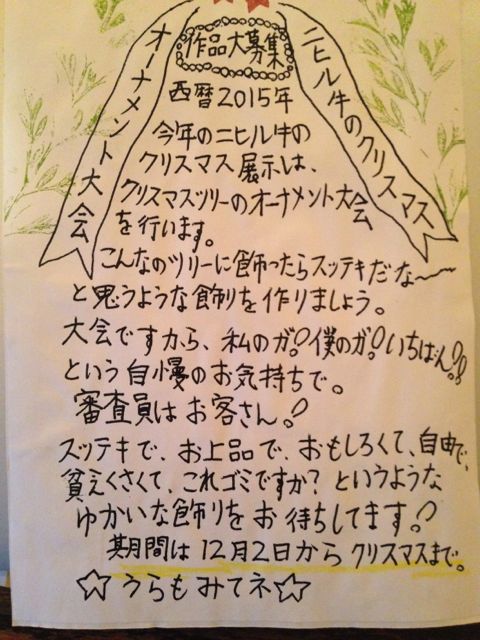 ニヒル牛のクリスマス
オーナメント大会
作品大募集
西暦2015年
今年のニヒル牛の
クリスマス展示は、
クリスマスツリーのオーナメント大会
を行います。
こんなのツリーに飾ったらスッテキだな〜〜
と思うような飾りを作りましょう。
大会ですから、私のガ!僕のガ!いちばん!!
という自慢のお気持ちで。
審査員はお客さん!
スッテキで、お上品で、おもしろくて、自由で、
貧乏くさくて、これゴミですか?というような
ゆかいな飾りをお待ちしてます!
期間は12月2日からクリスマスまで。
☆うらもみてネ☆